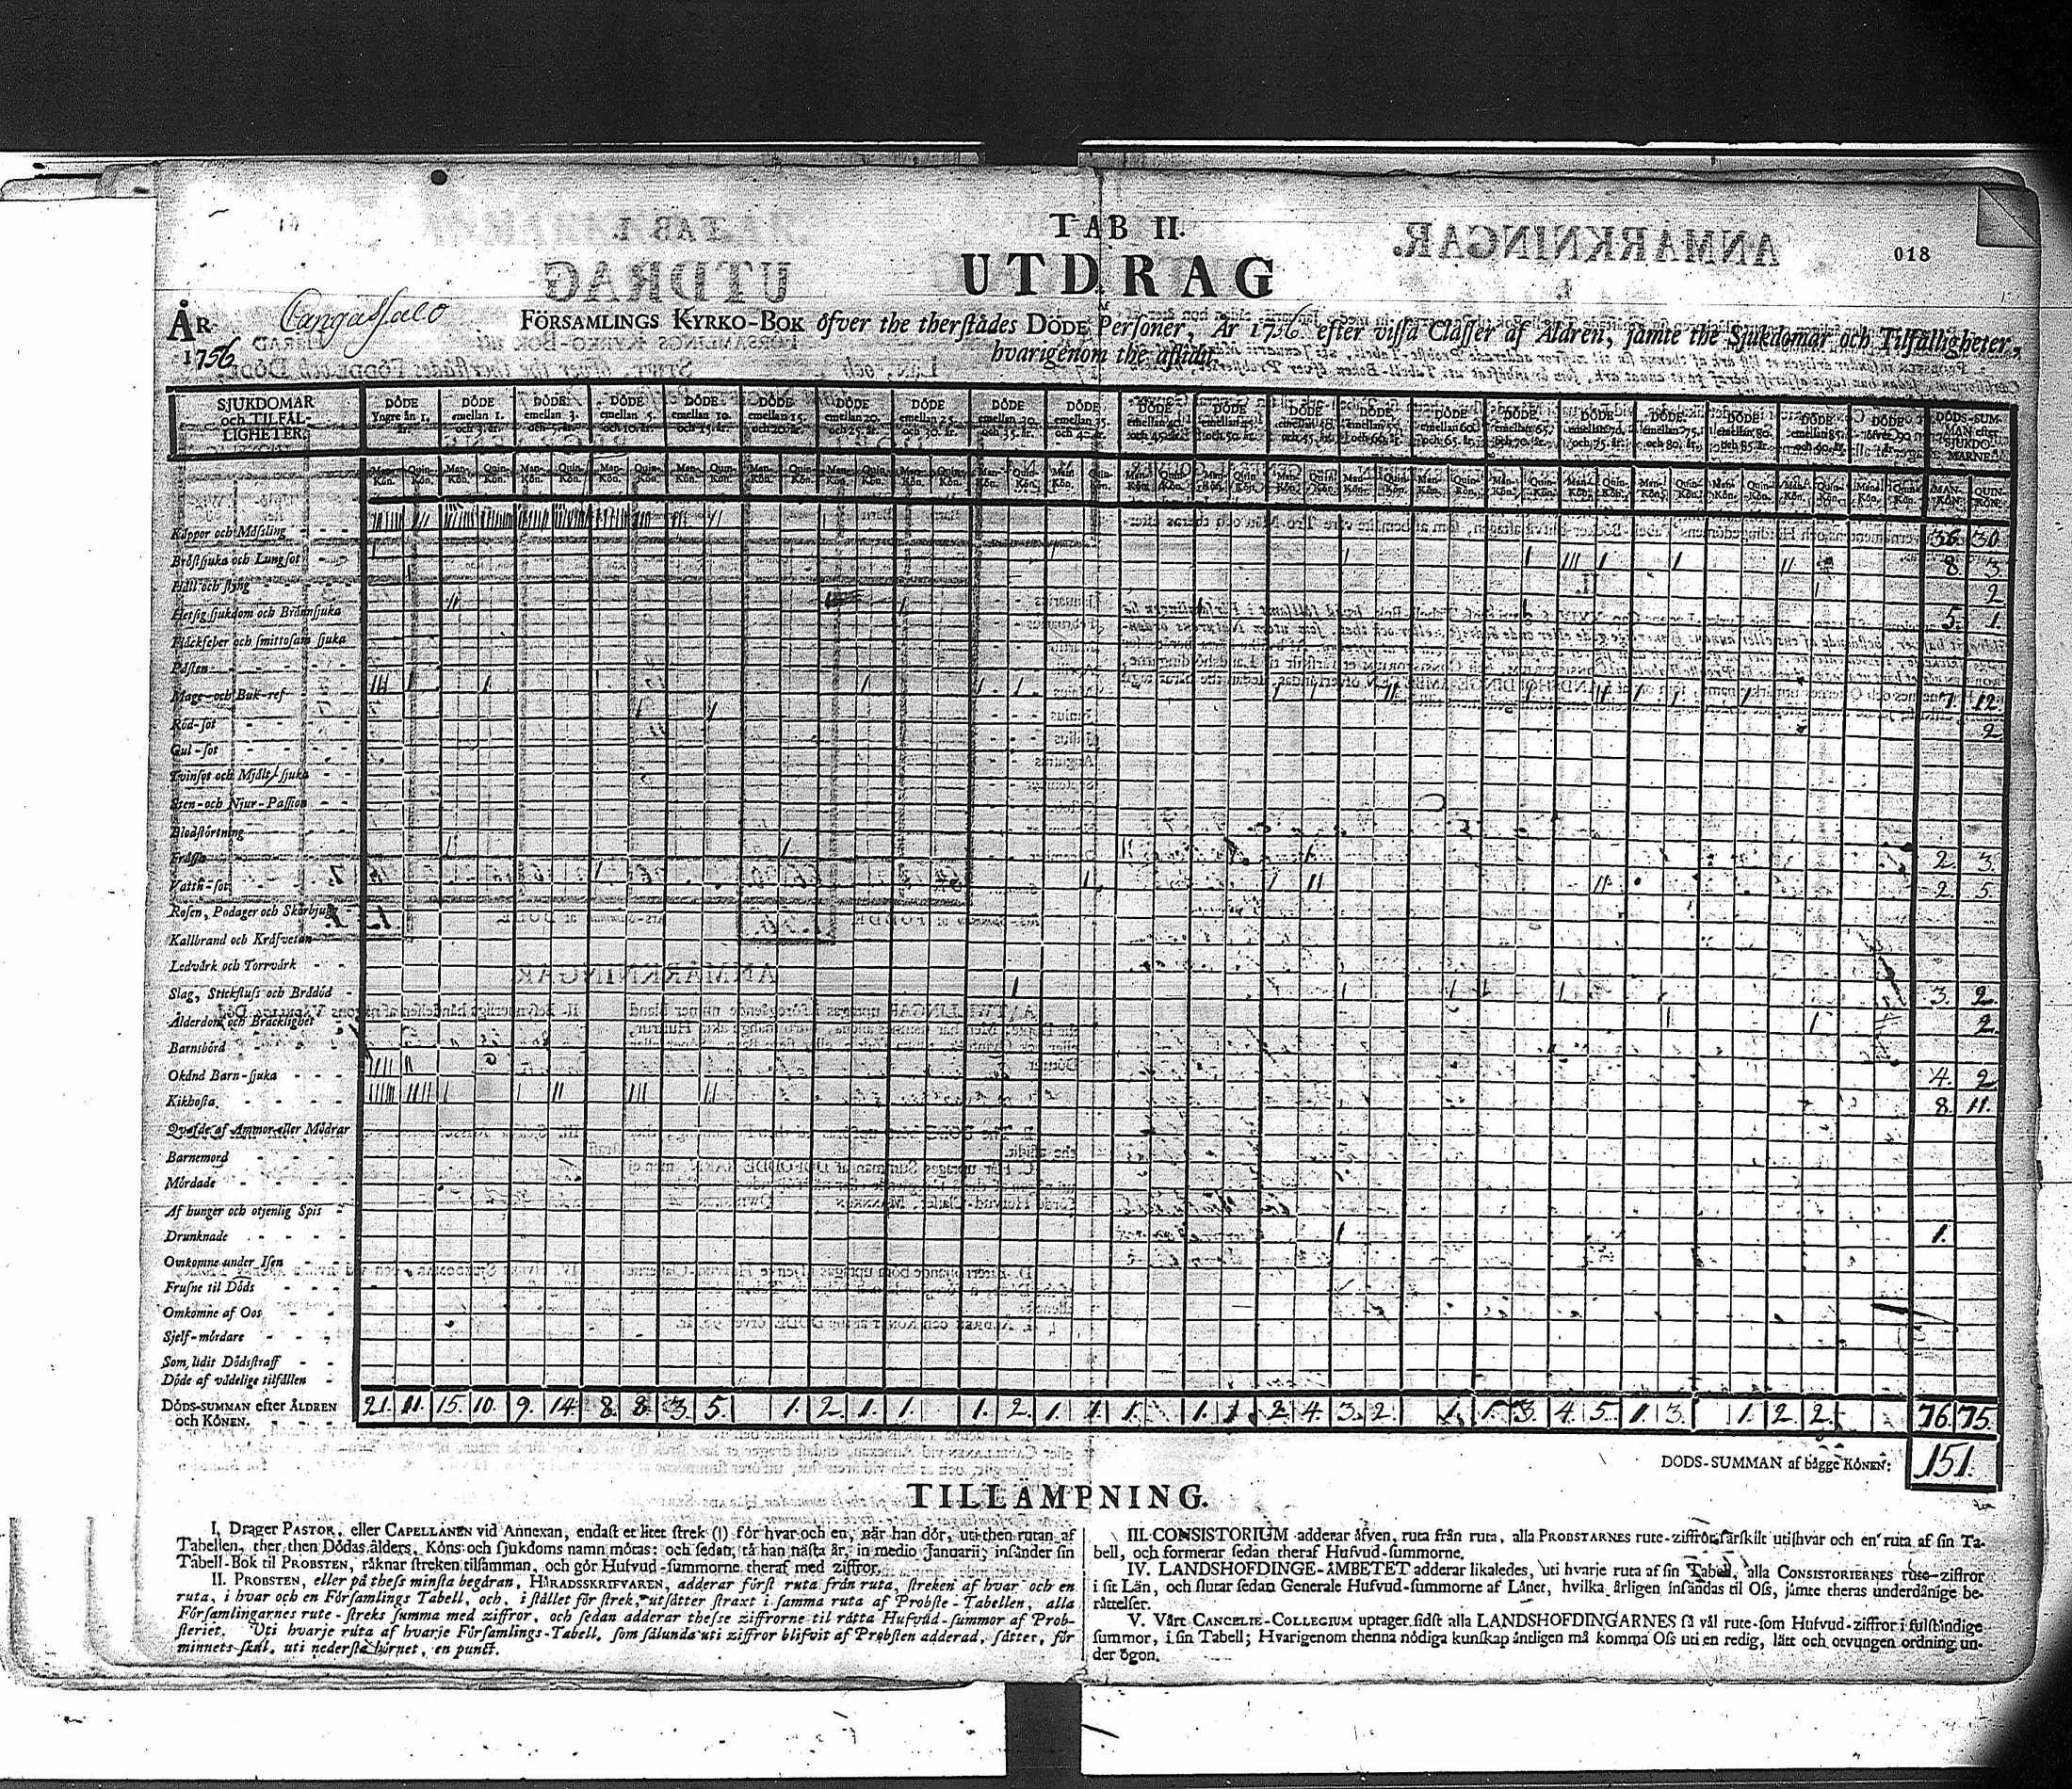 TAB II.
018
UTDRAG
ÅR
1756
Cangasalo
FÖRSAMLINGS KYRKO-BOK öfver the therstädes DÖDE Personer, År 1756 efter vissa Classer af Åldren, jämte the Sjukdomar och Tilfälligheter,
hvarigenom the aflidit.
SJUKDOMAR och TILFÄL-LIGHETER.
DÖDE Yngre än 1. år.
DÖDE emellan 1. och 3. år.
DÖDE emellan 3. och 5. år.
DÖDE emellan 5. och 10. år.
DÖDE emellan 10. och 15. år.
DÖDE emellan 15. och 20. år.
DÖDE emellan 20. och 25. år.
DÖDE emellan 25. och 30. år.
DÖDE emellan 30. och 35. år.
DÖDE emellan 35. och 40. år.
DÖDE
DÖDE
DÖDE
DÖDE
DÖDE emellan 60. och 65. år.
DÖDE emellan 65. och 70. år.
DÖDE emellan 70. och 75. år.
DÖDE emellan 75. och 80. år.
DÖDE emellan 80. och 85. år.
DÖDE emellan 85. och 90. år.
DÖDE öfver 90
DÖDS-SUM-MAN efter SJUKDO-MARNE.
Man-Kön. Quin-Kön.
MAN-KÖN. QUIN-KÖN.
Koppor och Mässling 36. 30.
Bröstsjuka och Lungsot 8. 3.
Håll och styng 2.
Hetsig sjukdom och Brännsjuka 5. 1.
Fläckfeber och smittosam sjuka
Pästen
Mage- och Buk-ref 7. 12.
Röd-sot 2
Gul-sot
Tvinsot och Mjält-sjuka
Sten- och Njur-Passion
Blodstörtning
Frässa 2. 3.
Vattn-sot 2. 5.
Rosen, Podager och Skörbjug
Kallbrand och Kräfvetan
Ledvärk och Torrvärk
Slag, Stickfluss och Brådöd 3. 2
Ålderdom och Bräcklighet 2
Barnsbörd
Okänd Barn-sjuka 4. 2
Kikhosta 8. 11.
Qväfde af Ammor eller Mödrar
Barnemord
Mördade
Af hunger och otjenlig Spis
Drunknade 1.
Omkomne under Isen
Frusne til Döds
Omkomne af Oos
Sjelf-mördare
Som lidit Dödsstraff
Döde af vådelige tilfällen
DÖDS-SUMMAN efter ÅLDREN och KÖNEN. 21. 11. 15. 10. 9. 14 8. 8. 3. 5. 1. 2. 1. 1. 1. 2. 1. 1. 1. 1. 1. 2 4. 3. 2. 1. 1. 3. 4. 5. 1. 3. 1. 2. 2. 76 75
DÖDS-SUMMAN af bägge KÖNEN: 151.
TILLÄMPNING.
I. Drager PASTOR, eller CAPELLANEN vid Annexan, endast et litet strek (I) för hvar och en, när han dör, uti then rutan af
Tabellen, ther then Dödas ålders, Köns och sjukdoms namn mötas: och sedan, tå han nästa år, in medio Januarii, insänder sin
Tabell-Bok til PROBSTEN, räknar streken tilsamman, och gör Hufvud-summorne theraf med ziffror.
II. PROBSTEN, eller på thess minsta begäran, HÄRADSSKRIFVAREN, adderar först ruta från ruta, streken af hvar och en
ruta, i hvar och en Församlings Tabell, och, i stället för strek, utsätter straxt i samma ruta af Probste-Tabellen, alla
Församlingarnes rute-streks summa med ziffror, och sedan adderar thesse ziffrorne til rätta Hufvud-summor af Prob-
steriet. Uti hvarje ruta af hvarje Församlings-Tabell, som sålunda uti ziffror blifvit af Probsten adderad, sättes, för
minnets skul, uti nedersta hörnet, en punct.
III. CONSISTORIUM adderar äfven, ruta från ruta, alla PROBSTARNES rute-ziffror särskilt uti hvar och en ruta af sin Ta-
bell, och formerar sedan theraf Hufvud-summorne.
IV. LANDSHÖFDINGE-ÄMBETET adderar likaledes, uti hvarje ruta af sin Tabell, alla CONSISTORIERNES rute-ziffror
i sit Län, och slutar sedan Generale Hufvud-summorne af Länet, hvilka årligen insändas til Oss, jämte theras underdånige be-
rättelser.
V. Vårt CANCELIE-COLLEGIUM uptager sidst alla LANDSHÖFDINGARNES så väl rute-som Hufvud-ziffror i fulständige
summor, i sin Tabell; Hvarigenom thenna nödiga kunskap äntligen må komma Oss uti en redig, lätt och otvungen ordning un-
der ögon.